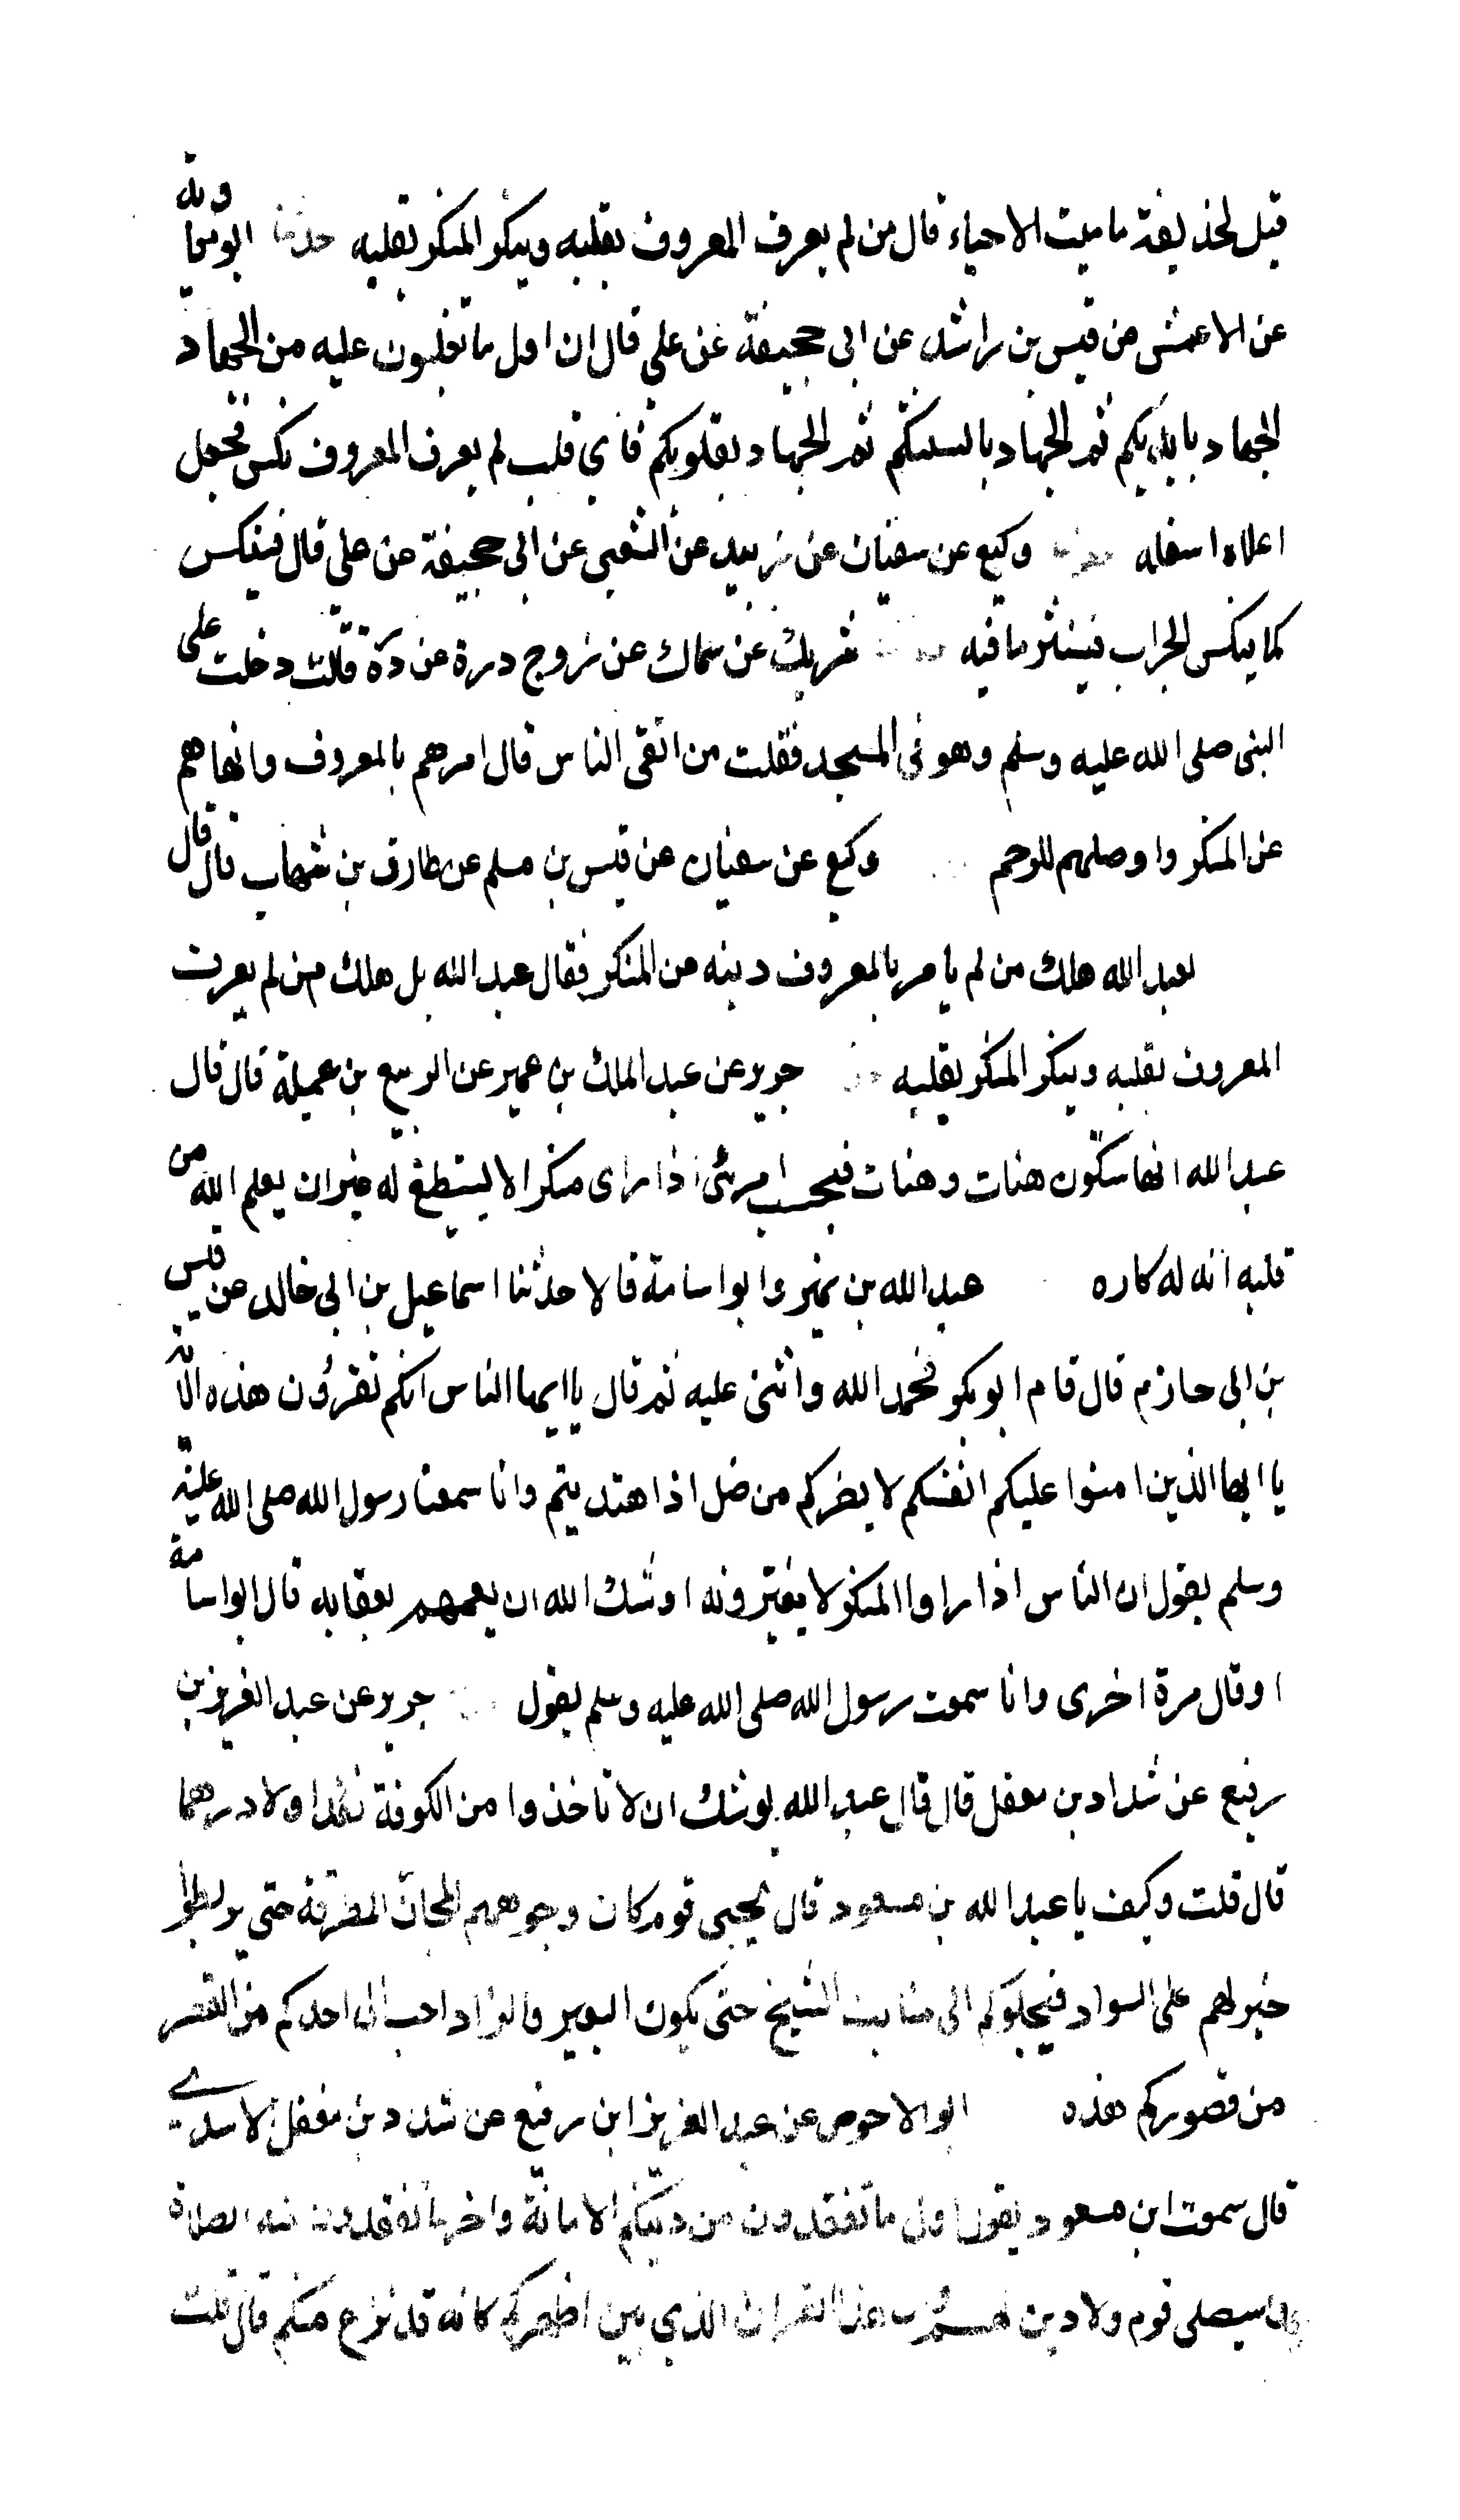 قيل لحذيفة ما ميت الاحياء قال من لم يعرف المعروف بقلبه وينكر المنكر بقلبه حدثنا ابو معاوية
عن الاعمش عن قيس بن راشد عن ابى جحيفة عن علي قال ان اول ما تغلبون عليه من الجهاد
الجهاد بايديكم ثم الجهاد بالسنتكم ثم الجهاد بقلوبكم فاي قلب لم يعرف المعروف نكس فجعل
اعلاه اسفله حدثنا وكيع عن سفيان عن زبيد عن الشعبى عن ابى جحيفة عن على قال فينكس
كما ينكس الجراب فينثر ما فيه شريك عن سماك عن زوج درة عن درة قالت دخلت على
النبى صلى الله عليه وسلم وهو فى المسجد فقلت من اتقى الناس قال امرهم بالمعروف وانهاهم
عن المنكر واوصلهم للرحم وكيع عن سفيان عن قيس بن مسلم عن طارق بن شهاب قال قال
لعبد الله هلك من لم يامر بالمعروف وينه عن المنكر فقال عبد الله بل هلك من لم يعرف
المعروف بقلبه وينكر المنكر بقلبه جرير عن عبد الملك بن عمير عن الربيع بن عميلة قال قال
عبد الله انها ستكون هنات وهنات فبحسب امرئ اذا راى منكرا لا يستطع له غير ان يعلم الله من
قلبه انه له كاره عبد الله بن نمير وابو اسامة قالا حدثنا اسماعيل بن ابى خالد عن قيس
بن ابى حازم قال قام ابو بكر فحمد الله واثنى عليه ثم قال يا ايها الناس انكم تقرؤن هذه الآية
يا ايها الذين امنوا عليكم انفسكم لا يضركم من ضل اذا اهتديتم وانا سمعنا رسول الله صلى الله عليه
وسلم يقول ان الناس اذا راوا المنكر لا يغيرونه اوشك الله ان يعمهم بعقابه قال ابو اسامة
اوقال مرة اخرى وانا سمعت رسول الله صلى الله عليه وسلم يقول جرير عن عبد العزيز بن
رفيع عن شداد بن معقل قال قال عبد الله يوشك ان لا تاخذوا من الكوفة نقدا ولا درهما
قال قلت وكيف يا عبد الله بن مسعود قال يجيى قوم كان وجوههم المجان المطرقة حتى يربطوا
خيولهم على السواد فيجلوكم الى منابت الشيخ حتى يكون البعير والزاد احب الى احدكم من القصر
من قصوركم هذه ابو الاحوص عن عبد العزيز ابن رفيع عن شداد بن معقل الاسدي
قال سمعت ابن مسعود يقول اول ما تفقدون من دينكم الامانة واخر ما تفقدون منه الصلاة
سيصلى قوم ولا دين لهم هذا القران الذي بين اظهركم كانه قد نزع منكم قال قلت